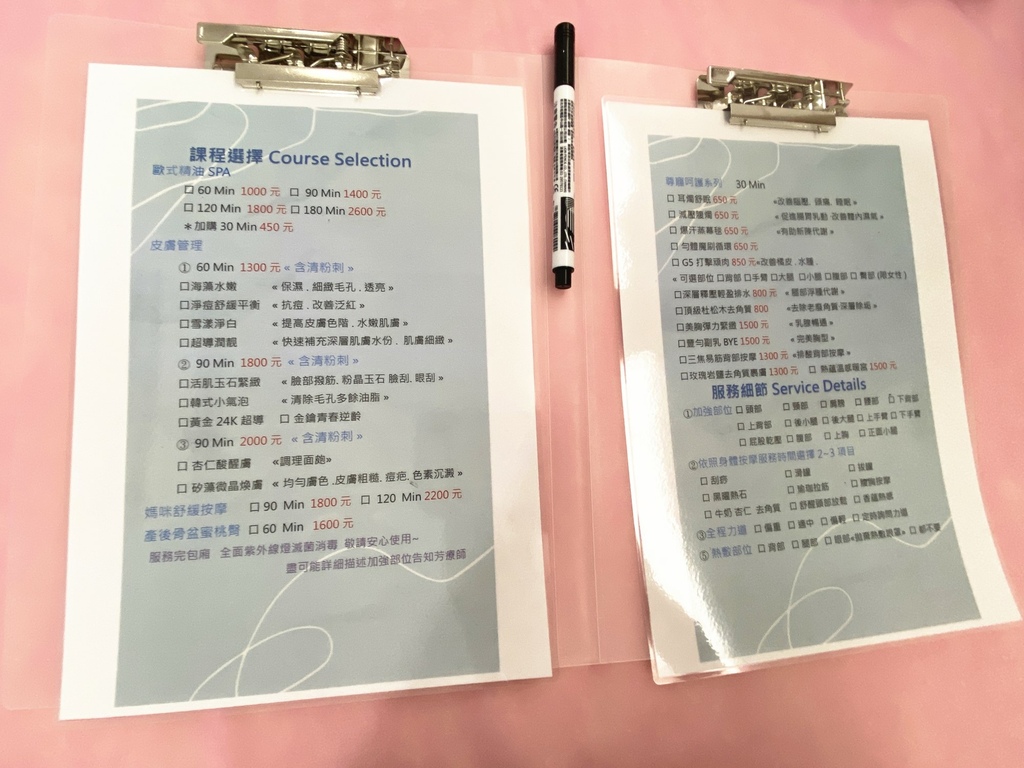 課程選擇 Course Selection
歐式精油 SPA
口 60 Min 1000 元 口 90 Min 1400 元
口 120 Min 1800 元 口 180 Min 2600 元
＊加購 30 Min 450 元
皮膚管理
① 60 Min 1300 元 « 含清粉刺 »
口海藻水嫩 « 保濕 . 細緻毛孔 . 透亮 »
口淨痘舒緩平衡 « 抗痘 . 改善泛紅 »
口雪漾淨白 « 提高皮膚色階 . 水嫩肌膚 »
口超導潤靚 « 快速補充深層肌膚水份 . 肌膚細緻 »
② 90 Min 1800 元 « 含清粉刺 »
口活肌玉石緊緻 « 臉部撥筋. 粉晶玉石 臉刮. 眼刮 »
口韓式小氣泡 « 清除毛孔多餘油脂 »
口黃金 24K 超導 口 金鑰青春逆齡
③ 90 Min 2000 元 « 含清粉刺 »
口 杏仁酸醒膚 «調理面皰»
口 矽藻微晶煥膚 « 均勻膚色 .皮膚粗糙. 痘疤. 色素沉澱 »
媽咪舒緩按摩 口 90 Min 1800 元 口 120 Min 2200 元
產後骨盆蜜桃臀 口 60 Min 1600 元
服務完包廂 全面紫外線燈滅菌消毒 敬請安心使用~
盡可能詳細描述加強部位告知芳療師
尊寵呵護系列 30 Min
口 耳燭舒眠 650 元 «改善腦壓. 頭痛. 睡眠 »
口 減壓臍燭 650 元 « 促進腸胃乳動 ·改善體內濕氣 »
口 爆汗蒸幕毯 650 元 «有助新陳代謝 »
口 勻體魔刷循環 650 元
口 G5 打擊頑肉 850 元 «改善橘皮 . 水腫 .
« 可選部位 口背部 口手臂 口大腿 口小腿 口腹部 口 臀部 (限女性 )
口深層釋壓輕盈排水 800 元 « 腿部浮腫代謝 »
口頂級杜松木去角質 800 «去除老廢角質 深層除垢 »
口美胸彈力緊緻 1500 元 « 乳腺暢通 »
口豐勻副乳 BYE 1500 元 « 完美胸型 »
口三焦易筋背部按摩 1300 元 «排酸背部按摩»
口玫瑰岩鹽去角質裹膚 1300 元 口 熱蘊溫感暖宮 1500 元
服務細節 Service Details
①加強部位 口 頭部 口 頸部 口 肩膀 口 腰部 口 下背部
口 上背部 口 後小腿 口 後大腿 口 上手臂 口 下手臂
口 屁股乾壓 口 腹部 口 上胸 口 正面小腿
②依照身體按摩服務時間選擇 2~3 項目
口 刮痧 口 滑罐 口 拔罐
口 黑曜熱石 口 瑜珈拉筋 口 腰胸按摩
口 牛奶 杏仁 去角質 口 舒醒頭部放鬆 口 香蘊熱紙
③全程力道 口 偏重 口 適中 口 偏輕 口 定時詢問力道
⑤ 熱敷部位 口 背部 口 腿部 口 眼部 口 都不要